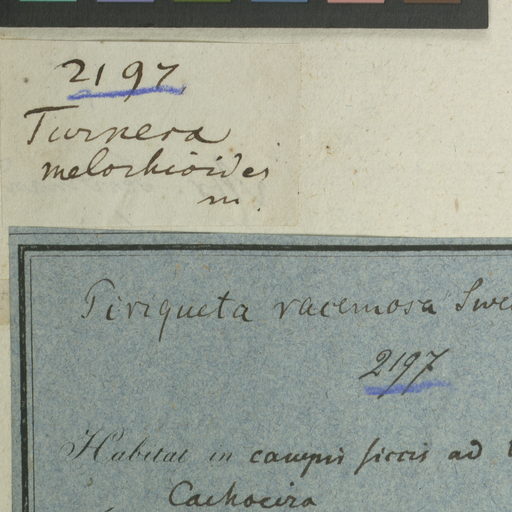 2197
Turnera
melochioides
m.
Piriqueta racemosa Swe
2197
Habitat in campis siccis ad
Cachoeira